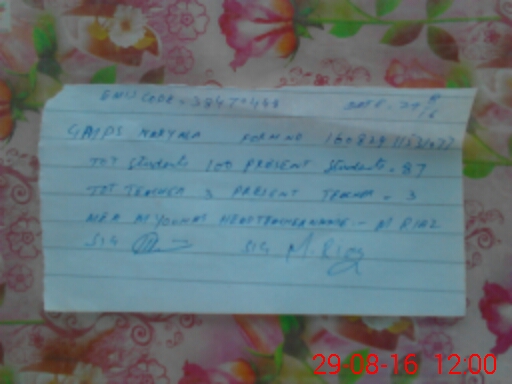 EMIS CODE = 38470448 DATE. 29/8/16
GMPS MARYALA FORM NO
TOT Students 100 PRESENT Students = 87
TOT TEACHER 3 PRESENT TEACHER = 3
MEA M YOUNAS HEADTEACHER NAME - M RIAZ
SIG SIG M.Riaz
29-08-16 12:00